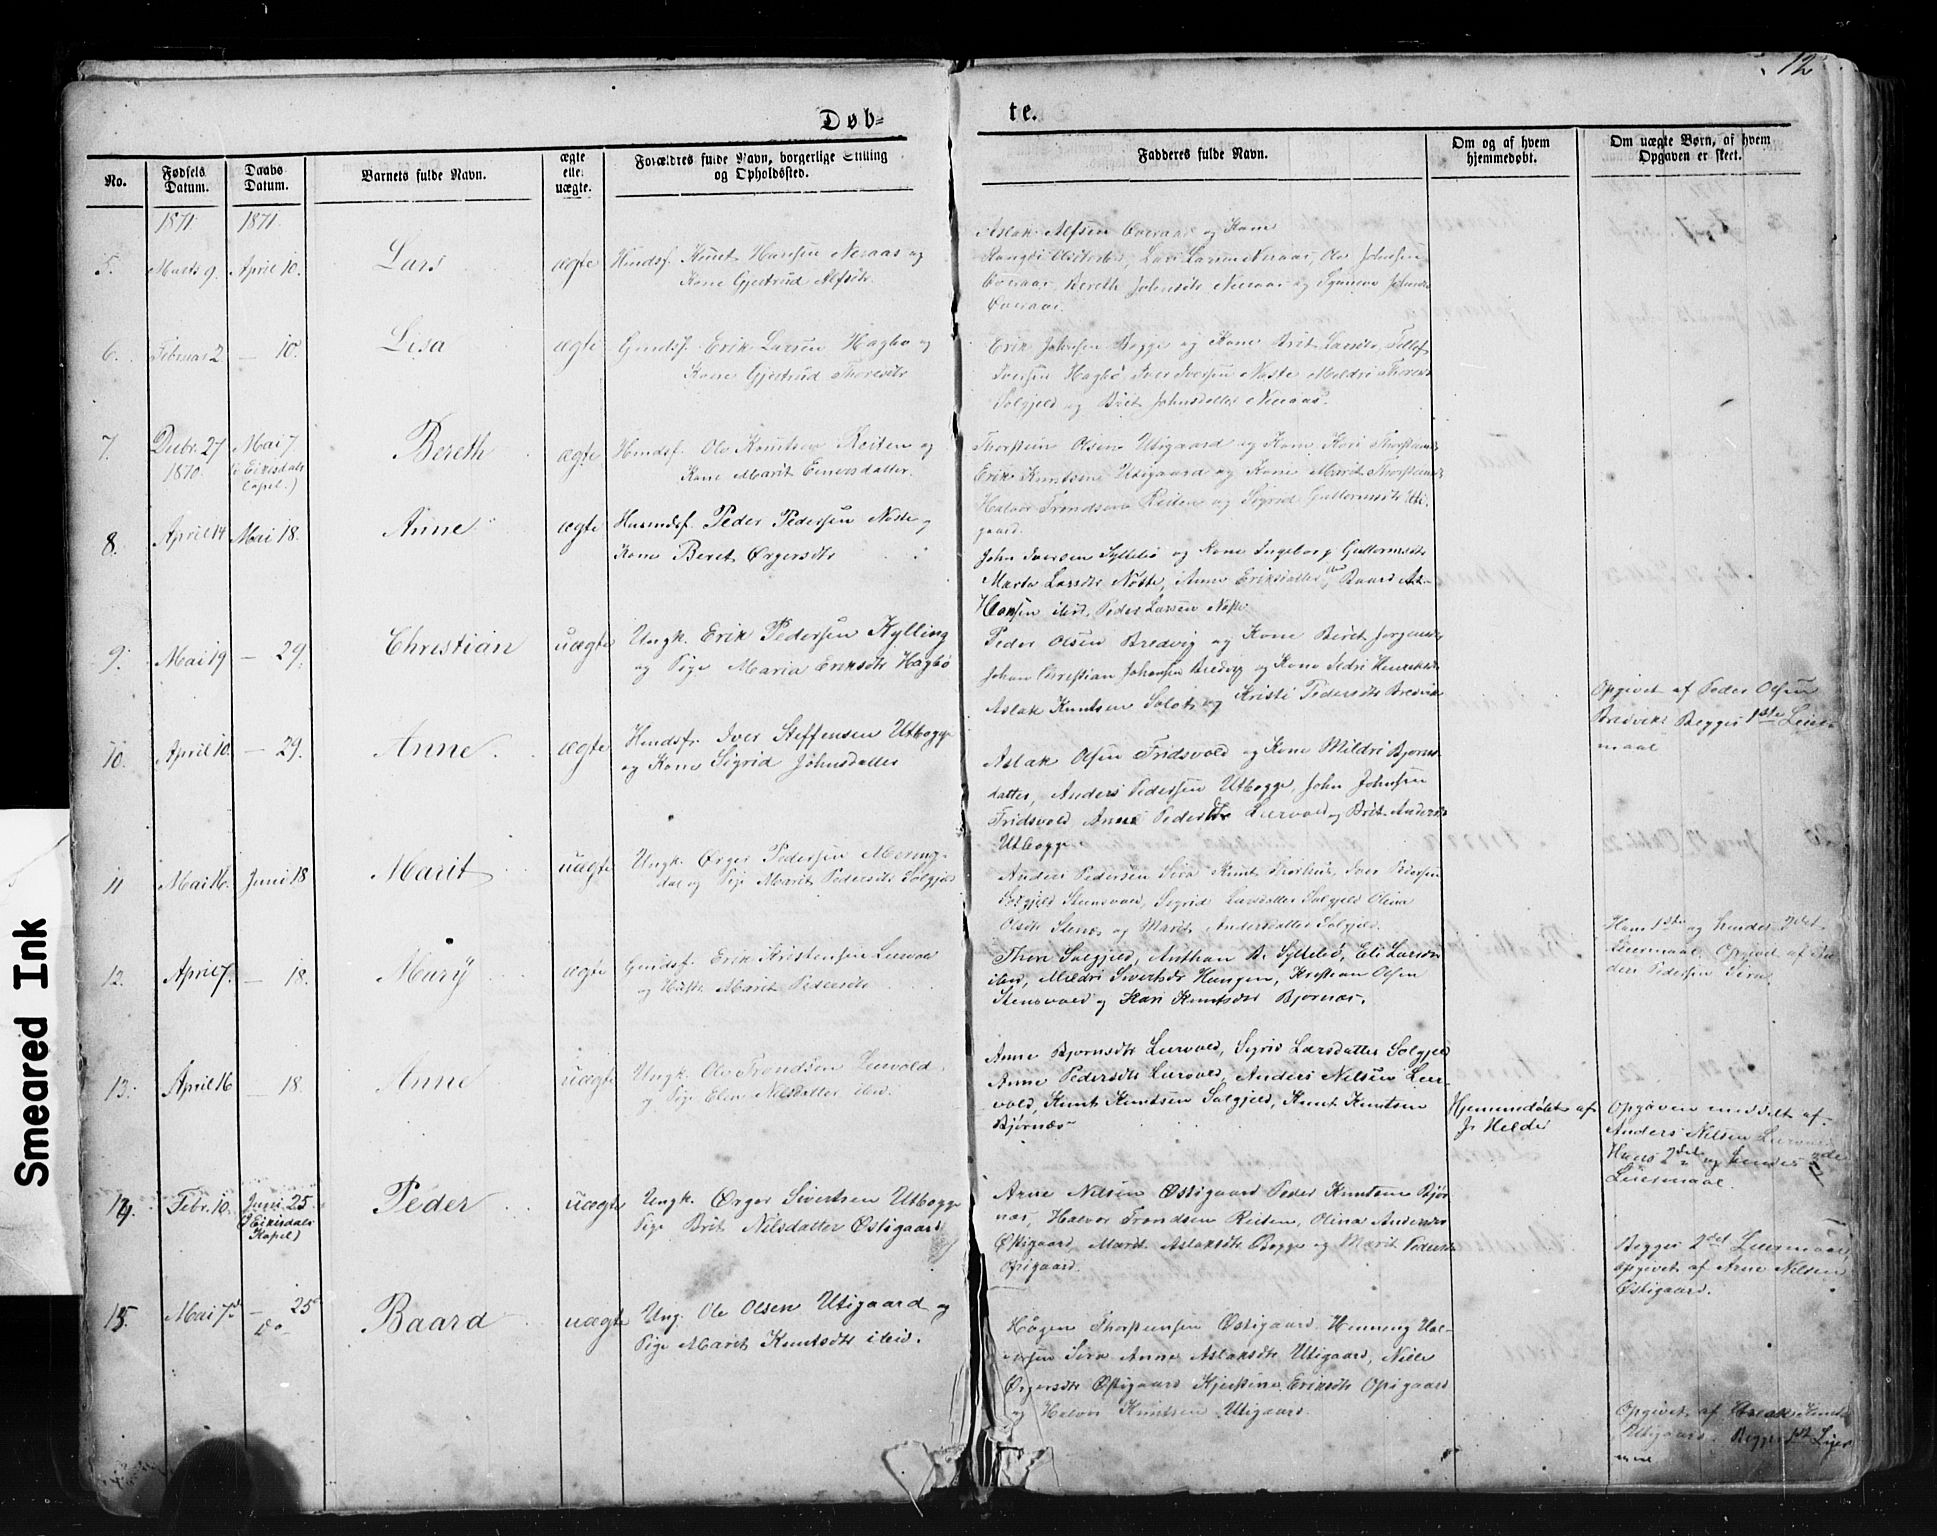 12
Døb-
te.
No.
Fødsels Datum.
Daabs Datum.
Barnets fulde Navn.
ægte eller uægte.
Forældres fulde Navn, borgerlige Stilling og Opholdssted.
Fadderes fulde Navn.
Om og af hvem hjemmedøbt.
Om uægte Børn, af hvem Opgaven er skeet.
1871 1871
5. Marts 9. April 10. Lars ægte Knut Hansen Neraas og
Kone Gjertrud Alfsdtr.
Aslak Alfsen Overaas og Kone
Lars Larsen Neraas, Ole Johnsen
Overaas, Bereth Johnsdtr Neraas og Synneve Johnsdtr
Overaas.
6. Februar 2 — 10. Lisa ægte Gmdsf. Erik Larsen Hagbø og
Kone Gjertrud Thoresdtr
Erik Johnsen Bogge og Kone Brit Larsdtr,
Iversen Hagbø, Iver Iversen Nøste Mildri
Solgjeld og Brit Johnsdatter Neraas.
7. Decbr. 27 1870. Mai 7 (i Eikisdals Capel.) Bereth ægte Ole Knutsen Reiten og
Kone Marit Einersdatter.
Thorstein Olsen Utigaard og Kone Kari Thorsteinsdtr
Erik Knutsen Utigaard og Kone Marit Thorsteinsdtr
Halvor Trondsen Reiten og Sigrid Guttormsdtr Uti-
gaard.
8. April 14 Mai 18. Anne ægte Husmdsf. Peder Pedersen Nøste og
Kone Beret Ørgersdtr
John Iversen Syltebø og Kone Ingeborg Guttormsdtr
Marte Larsdtr Nøste, Anne Eriksdatter Baard
Hansen ibid, Peder Larsen Nøste
9. Mai 19 — 29. Christian uægte Ungk. Erik Pedersen Kylling
og Pige Maria Eriksdtr Hagbø
Peder Olsen Bredvig og Kone Beret Jørgensdtr
Johan Christian Johansen Bredvig og Kone Henriksdtr
Aslak Knutsen og Kristi Pedersdtr Bredvik
Opgivet af Peder Olsen
Bredvik. Begges 1ste Leier-
maal
10. April 10. — 29. Anne ægte Iver Steffensen Utbogge
og Kone Sigrid Johnsdatter
Aslak Olsen Fridsvold og Kone Mildri Bjørns-
datter, Anders Pedersen Utbogge, John Johnsen
Fridsvold Anne Pedersdtr Leervold og Brit Andersdtr
Utbogge
11 Mai 16. Juni 18 Marit uægte Ungk. Ørger Pedersen Mering-
dal og Pige Marit Pedersdtr Solgjeld
Anders Pedersen Sira Knut Iver
Solgjeld Stensvold, Sigrid Larsdatter Solgjeld Olina
Olsdtr og Marit Andersdatter Solgjeld.
Hans 1ste og hendes 2det
Leiermaal. Opgivet af An-
ders Pedersen Sira.
12. April 7. — 18. Mary ægte Gmdsf. Erik Kristensen Leervold
og Hustr. Marit Pedersdtr
Thore Solgjeld, Anthon A. Syltebø, Eli Larsdtr
ibid, Mildri Sivertsdtr Haugen, Kristian Olsen
Stensvold og Kari Knutsdtr Bjørnæs.
13. April 16 — 18. Anne uægte Ungk. Ole Trondsen Leervold
og Pige Elen Nilsdatter ibid.
Anne Bjørnsdtr Leervold, Sigrid Larsdatter Solgjeld
Anne Pedersdtr Leervold, Anders Nilsen Leer-
vold, Knut Knutsen Solgjeld, Knut Knutsen
Bjørnæs
Hjemmedøbt af
J. Melder
Opgaven meddelt af
Anders Nilsen Leervold
Hans 2det og hendes 2de
Leiermaal.
14. Febr. 10. Juni 25 (i Eikisdals Kapel) Peder uægte Ungk. Ørger Sivertsen Utbogge
Pige Brit Nilsdatter Østigaard
Arne Nilsen Østigaard Peder Knutsen Bjør-
næs, Halvor Trondsen Reiten, Olina Andersdtr
Østigaard, Marit Aslaksdtr Bogge og Marit Pedersdtr
Opigaard.
Begges 2det Leiermaal,
opgivet af Arne Nilsen
Østigaard.
15. Mai 7d. — 25 do Baard uægte Ung. Ole Olsen Utigaard og
Pige Marit Knutsdtr ibid.
Haagen Thorsteinsen Østigaard. Henning Hal-
vorsen Sira Anne Aslaksdtr Utigaard,
Ørgersdtr Østigaard Kjerstine Eriksdtr Opigaard
og Halvor Knutsen Utigaard.
Opgivet af Aslak
Utigaard. Begges 1st Leier
Smeared Ink